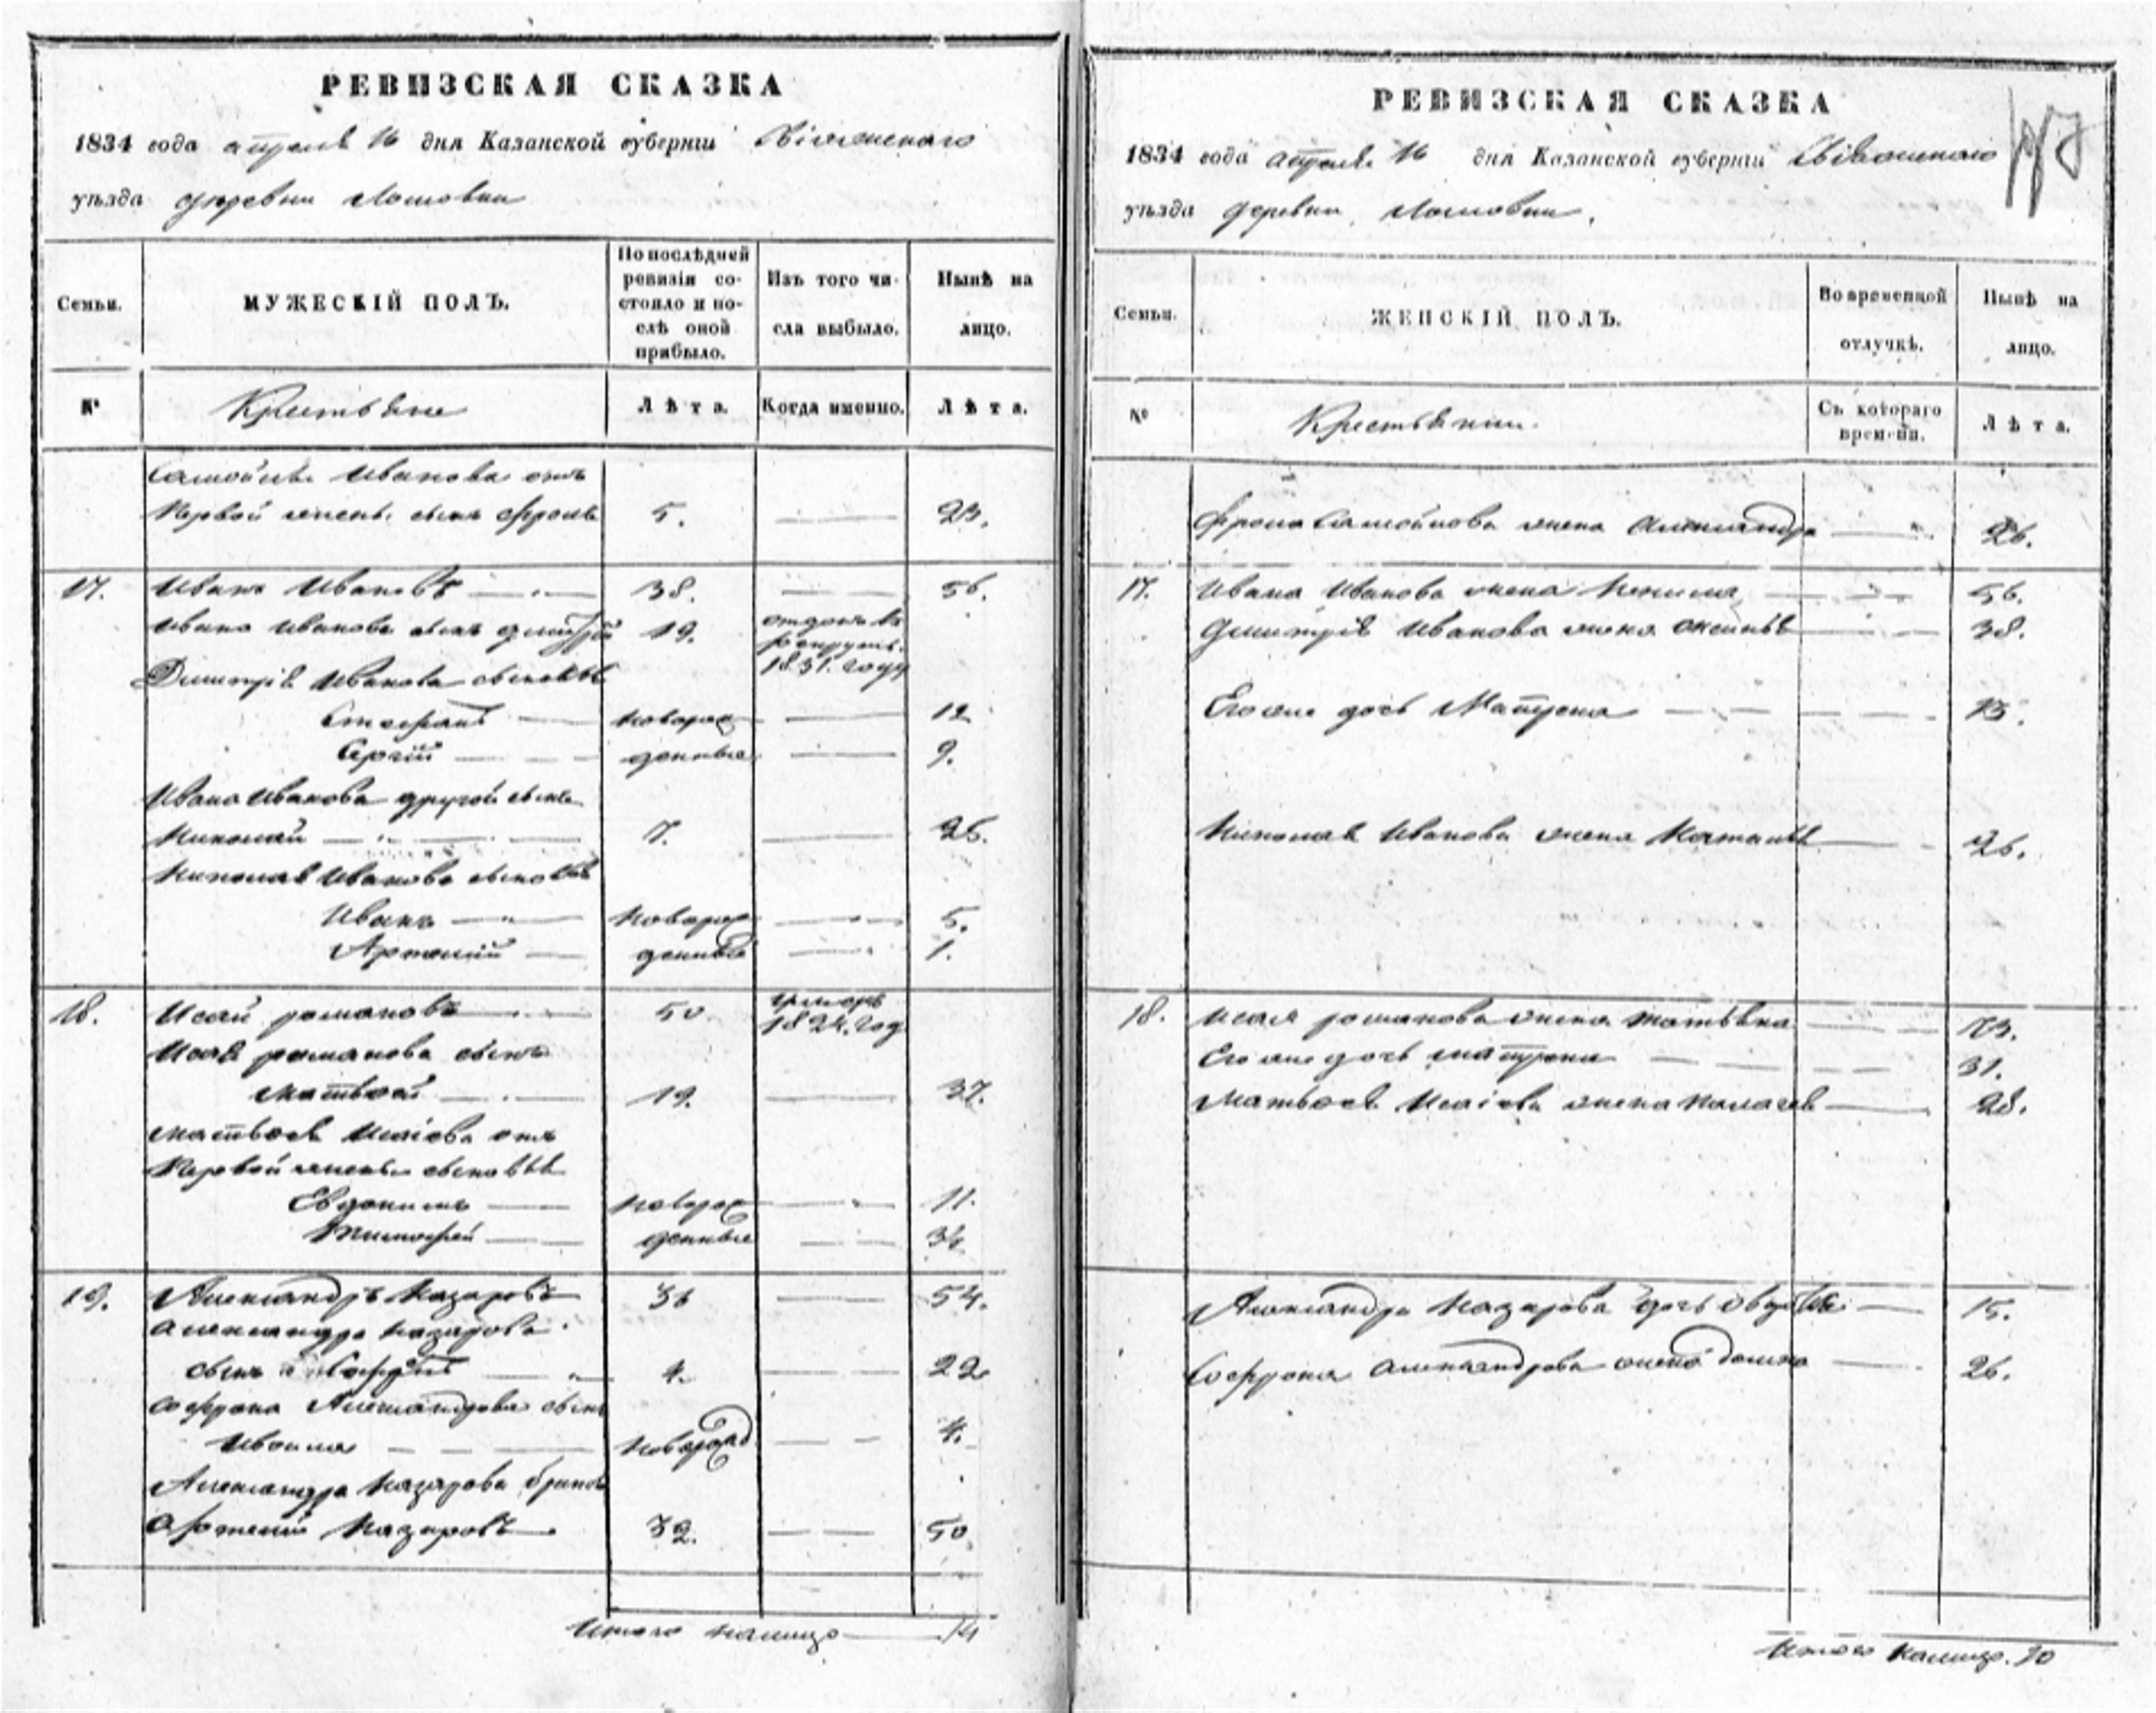 РЕВИЗСКАЯ СКАЗКА
1834 года апреля 16 дня Казанской губерніи Свіяжскаго
уѣзда деревни
Семьи.
МУЖЕСКІЙ ПОЛЪ.
По послѣдней ревизіи состояло и послѣ оной прибыло.
Изъ того числа выбыло.
Нынѣ на лицо.
№
Крестьяне
Лѣта.
Когда именно.
Лѣта.
Самойлы Иванова отъ
первой жены сынъ Фролъ 5. 23.
17. Иванъ Ивановъ 38. 56.
Ивана Иванова сынъ Дмитрій 19. отданъ въ рекруты 1831. году
Дмитрія Иванова сыновья
Стефанъ новорож 12
Сергій денные 9.
Ивана Иванова другой сынъ
Николай 7. 25.
Николая Иванова сыновья
Иванъ новорож 5.
Артемій денные 1.
18. Исай Романовъ 50 1824. год
Исая Романова сынъ
Матвей 19. 37.
Матвея Исаіева отъ
первой жены сыновья
Евдокимъ новорож 11.
Тимофей денные
19. Александръ Назаровъ 36 54.
Александра Назарова
сынъ 4. 22
Софрона Александрова сынъ
новорожд 4.
Александра Назарова братъ
Артемій Назаровъ 32. 50
Итого налицо 14
РЕВИЗСКАЯ СКАЗКА
1834 года апреля 16 дня Казанской губерніи Свіяжскаго
уѣзда деревни
Семьи.
ЖЕНСКІЙ ПОЛЪ.
Во временной отлучкѣ.
Нынѣ на лицо.
№
Крестьянки.
Съ котораго времени.
Лѣта.
Фрола Самойлова жена Александра 26.
17. Ивана Иванова жена 56.
Дмитрія Иванова жена 38.
Его же дочь Матрена 13.
Николая Иванова жена Наталья 26.
18. Исая Романова жена Татьяна 53.
Его же дочь Матрена 31.
Матвея Исаіева жена Палагея 28.
Александра Назарова дочь 15.
Софрона Александрова жена Домна 26.
Итого налицо. 10